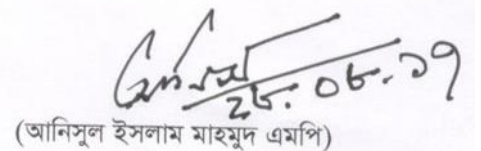 ২৮.০৮.১৭
(আনিসুল ইসলাম মাহমুদ এমপি)